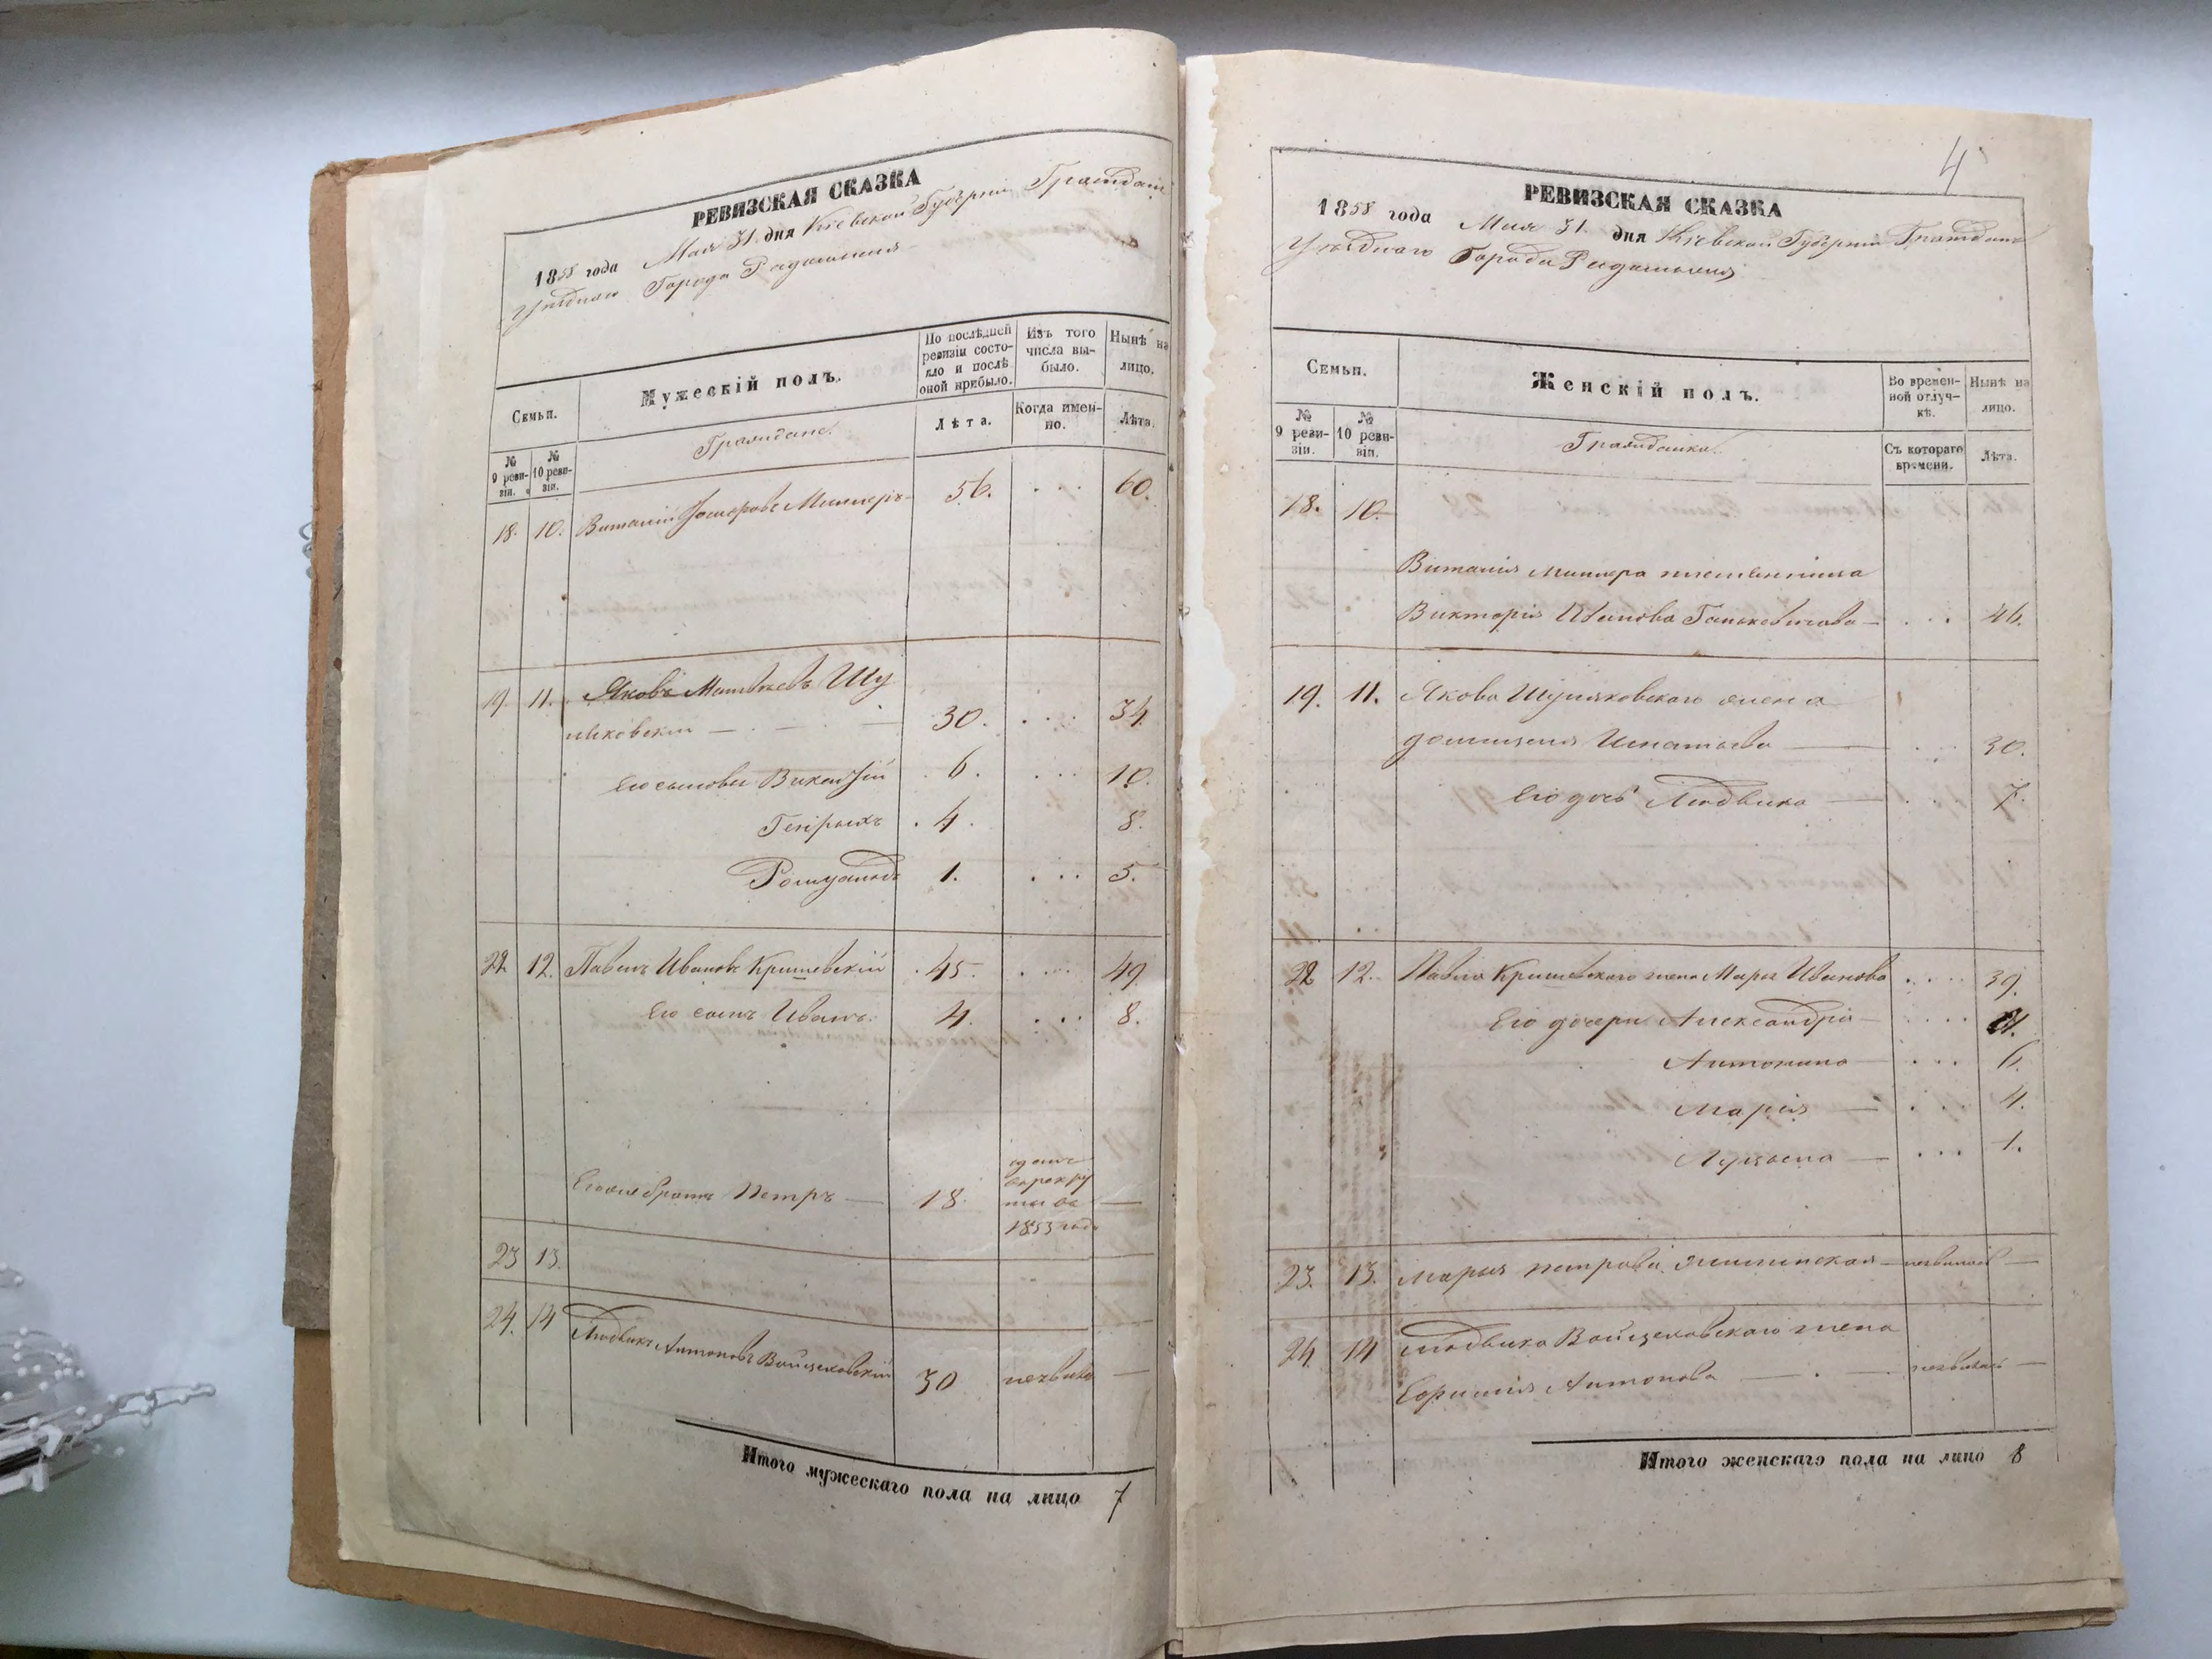 РЕВИЗСКАЯ СКАЗКА
1858 года Мая 31 дня Кіевской Губерніи Граждане
Уѣзднаго Города Радомысля
Семьи.
Мужескій полъ.
По послѣдней ревизіи состояло и послѣ оной прибыло.
Изъ того числа выбыло.
Нынѣ на лицо.
№ 9 ревизіи.
№ 10 ревизіи.
Граждане.
Лѣта.
Когда именно.
Лѣта.
18. 10. Виталій Миллеръ 56. . . . 60.
19. 11. Яковъ Матвѣевъ Шу
мковскій 30. . . . 34.
Его сыновья Викентій 6. . . . 10.
Генрыхъ 4. 8.
Ромуальдъ 1. . . . 5.
22. 12. Павелъ Ивановъ Кришевскій 45. . . . 49.
Его сынъ Иванъ. 4. . . . 8.
Его же братъ Петръ 18. отданъ
въ рекру
ты въ
1853 году
23 13.
24. 14 Людвикъ Антоновъ Войцеховскій 30 неявил. —
Итого мужескаго пола на лицо 7
4
РЕВИЗСКАЯ СКАЗКА
1858 года Мая 31 дня Кіевской Губерніи Граждане
Уѣзднаго Города Радомысля
Семьи.
Женскій полъ.
Во временной отлучкѣ.
Нынѣ на лицо.
№ 9 ревизіи.
№ 10 ревизіи.
Гражданки.
Съ котораго времени.
Лѣта.
18. 10.
Виталія Миллера племенница
Викторія Иванова . . . 46.
19. 11. Якова Шумяковскаго жена
Домицеля Игнатьева . . . 30.
Его дочь Людвика . . . 7.
22 12. Павла Кришевскаго жена Марья Иванова . . . . 39.
Его дочери Александрія . . . .
Антонина . . . 6.
Марія . . . 4.
Луцыена . . . 1.
23. 13. Марья Петрова неявилась —
24 14 Людвика Войцеховскаго жена
Ефимія Антонова неявилась —
Итого женскаго пола на лицо 8